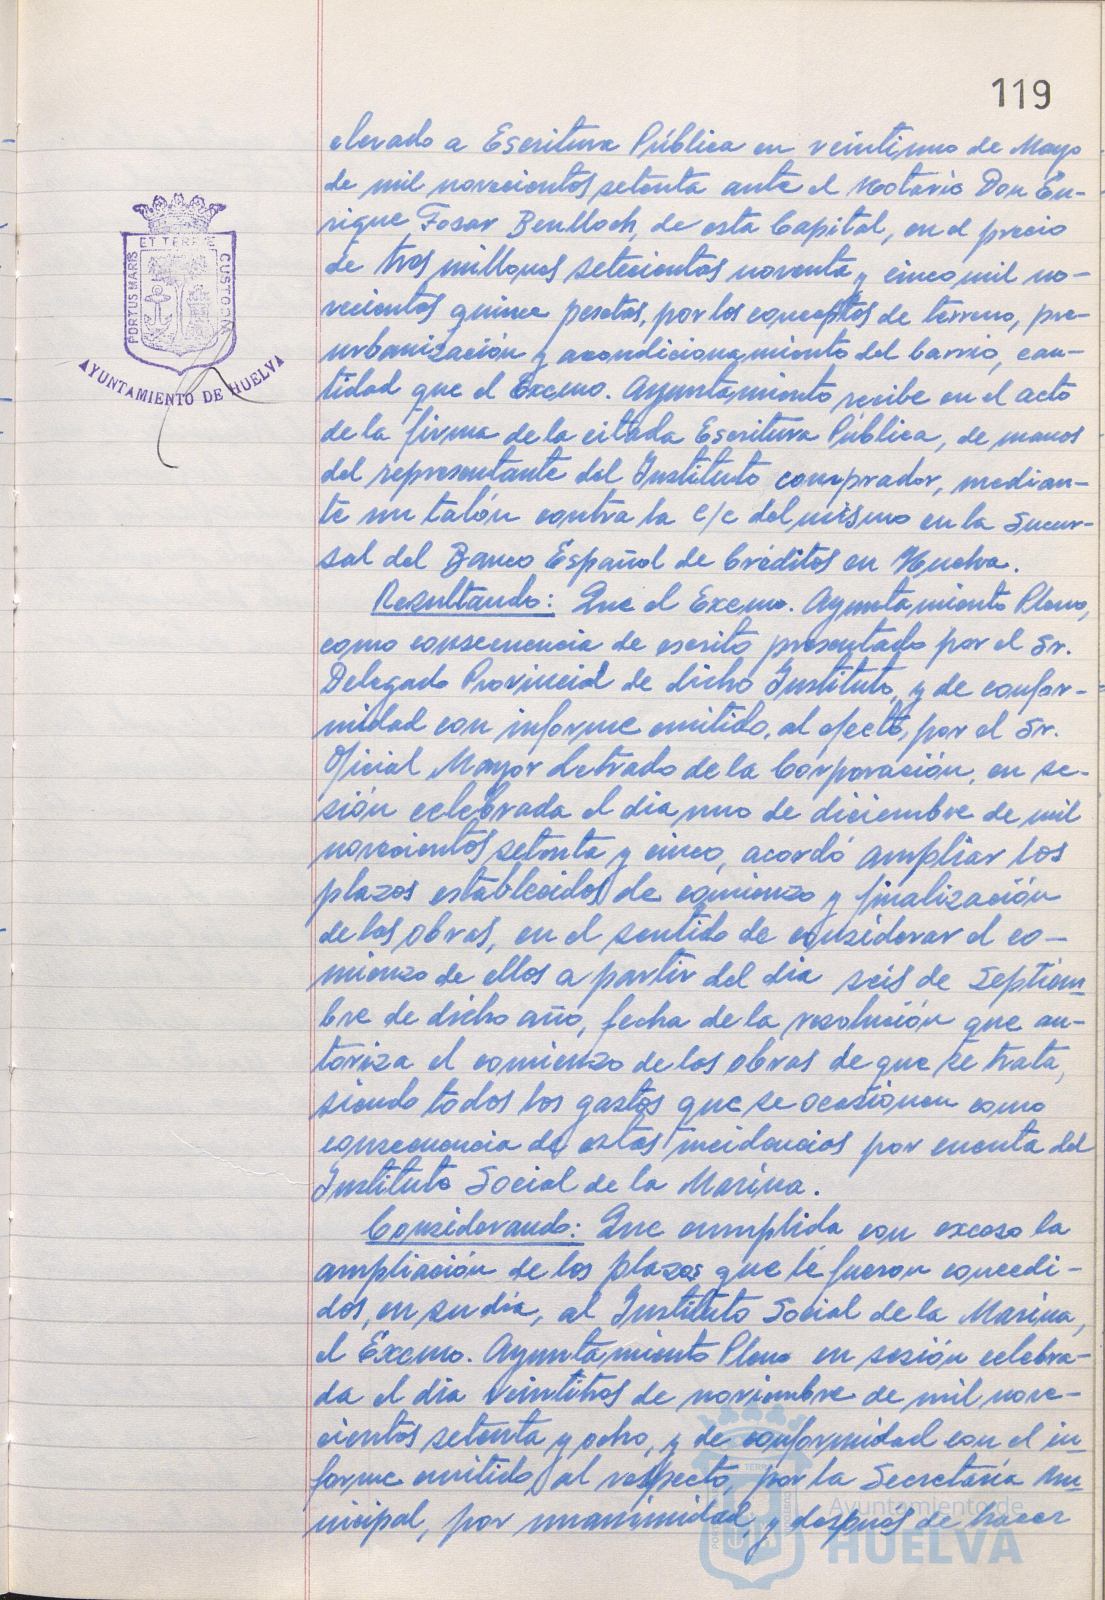 119
elevado a Escritura Pública en veintiuno de Mayo
de mil novecientos setenta ante el Notario Don En-
rique Fosar Benlloch, de esta Capital, en el precio
de tres millones setecientas noventa y cinco mil no-
vecientas quince pesetas, por los conceptos de terreno, pre-
urbanización y acondicionamiento del barrio, can-
tidad que el Excmo. Ayuntamiento recibe en el acto
de la firma de la citada Escritura Pública, de manos
del representante del Instituto comprador, median-
te un talón contra la c/c del mismo en la Sucur-
sal del Banco Español de Créditos en Huelva.
Resultando: Que el Excmo. Ayuntamiento Pleno,
como consecuencia de escrito presentado por el Sr.
Delegado Provincial de dicho Instituto, y de confor-
midad con informe emitido, al efecto, por el Sr.
Oficial Mayor Letrado de la Corporación, en se-
sión celebrada el dia uno de diciembre de mil
novecientos setenta y cinco, acordó ampliar los
plazos establecidos de comienzo y finalización
de las obras, en el sentido de considerar el co-
mienzo de ellos a partir del dia seis de Septiem-
bre de dicho año, fecha de la resolución que au-
toriza el comienzo de las obras de que se trata,
siendo todos los gastos que se ocasionen como
consecuencia de estas incidencias por cuenta del
Instituto Social de la Marina.
Considerando: Que cumplida con exceso la
ampliación de los plazos que le fueron concedi-
dos, en su día, al Instituto Social de la Marina,
el Excmo. Ayuntamiento Pleno en sesión celebra-
da el dia veintitres de noviembre de mil nove-
cientos setenta y ocho, y de conformidad con el in
forme emitido al respecto, por la Secretaría Mu
nicipal, por unanimidad, y después de hacer
PORTUS MARIS
ET TERRE
CUSTODIA
AYUNTAMIENTO DE HUELVA
Ayuntamiento de
HUELVA